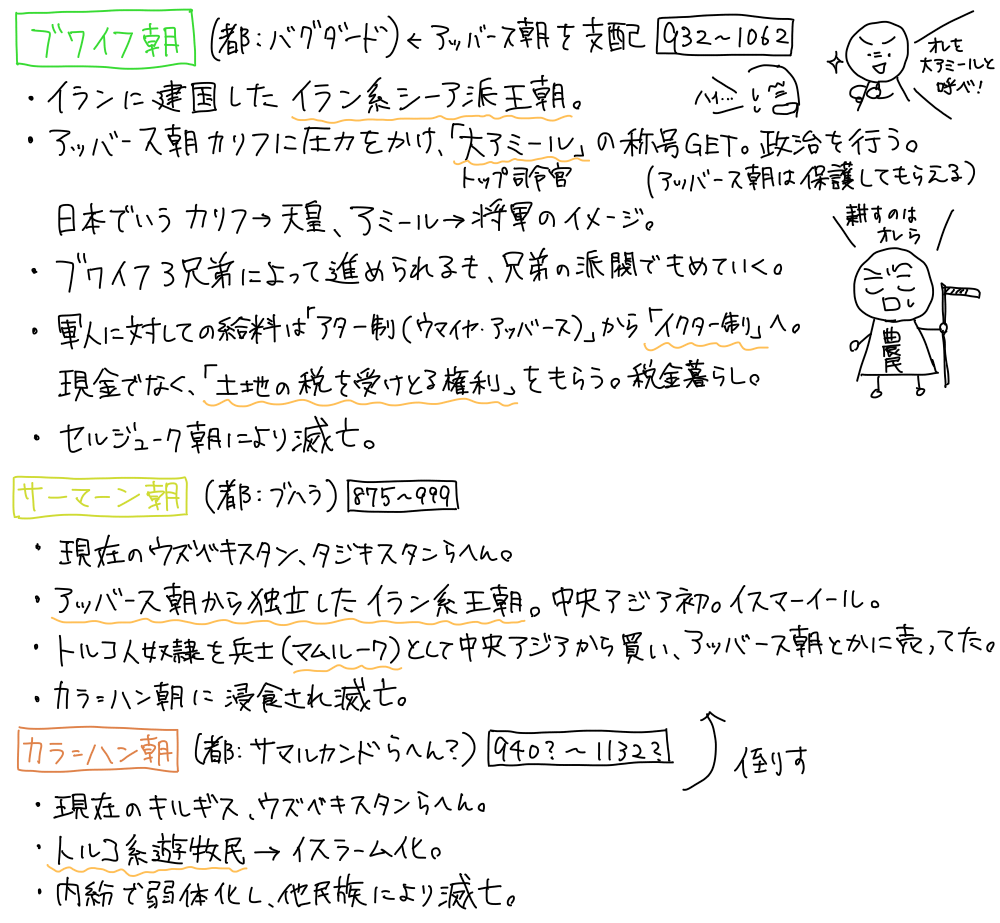 ブワイフ朝 (都:バグダード)←アッバース朝を支配 932~1062
オレを
大アミールと
呼べ!
ハイ…
・イランに建国したイラン系シーア派王朝。
・アッバース朝カリフに圧力をかけ、「大アミール」の称号GET。政治を行う。
トップ司令官 (アッバース朝は保護してもらえる)
日本でいうカリフ→天皇、アミール→将軍のイメージ。
耕すのは
オレら
農民
・ブワイフ3兄弟によって進められるも、兄弟の派閥でもめていく。
・軍人に対しての給料は「アター制(ウマイヤ・アッバース)」から「イクター制」へ。
現金でなく、「土地の税を受けとる権利」をもらう。税金暮らし。
・セルジューク朝により滅亡。
サーマーン朝 (都:ブハラ) 875~999
・現在のウズベキスタン、タジキスタンらへん。
・アッバース朝から独立したイラン系王朝。中央アジア初。イスマーイール。
・トルコ人奴隷を兵士(マムルーク)として中央アジアから買い、アッバース朝とかに売ってた。
・カラ=ハン朝に浸食され滅亡。
カラ=ハン朝 (都:サマルカンドらへん?) 940?~1132?
倒す
・現在のキルギス、ウズベキスタンらへん。
・トルコ系遊牧民→イスラーム化。
・内紛で弱体化し、他民族により滅亡。